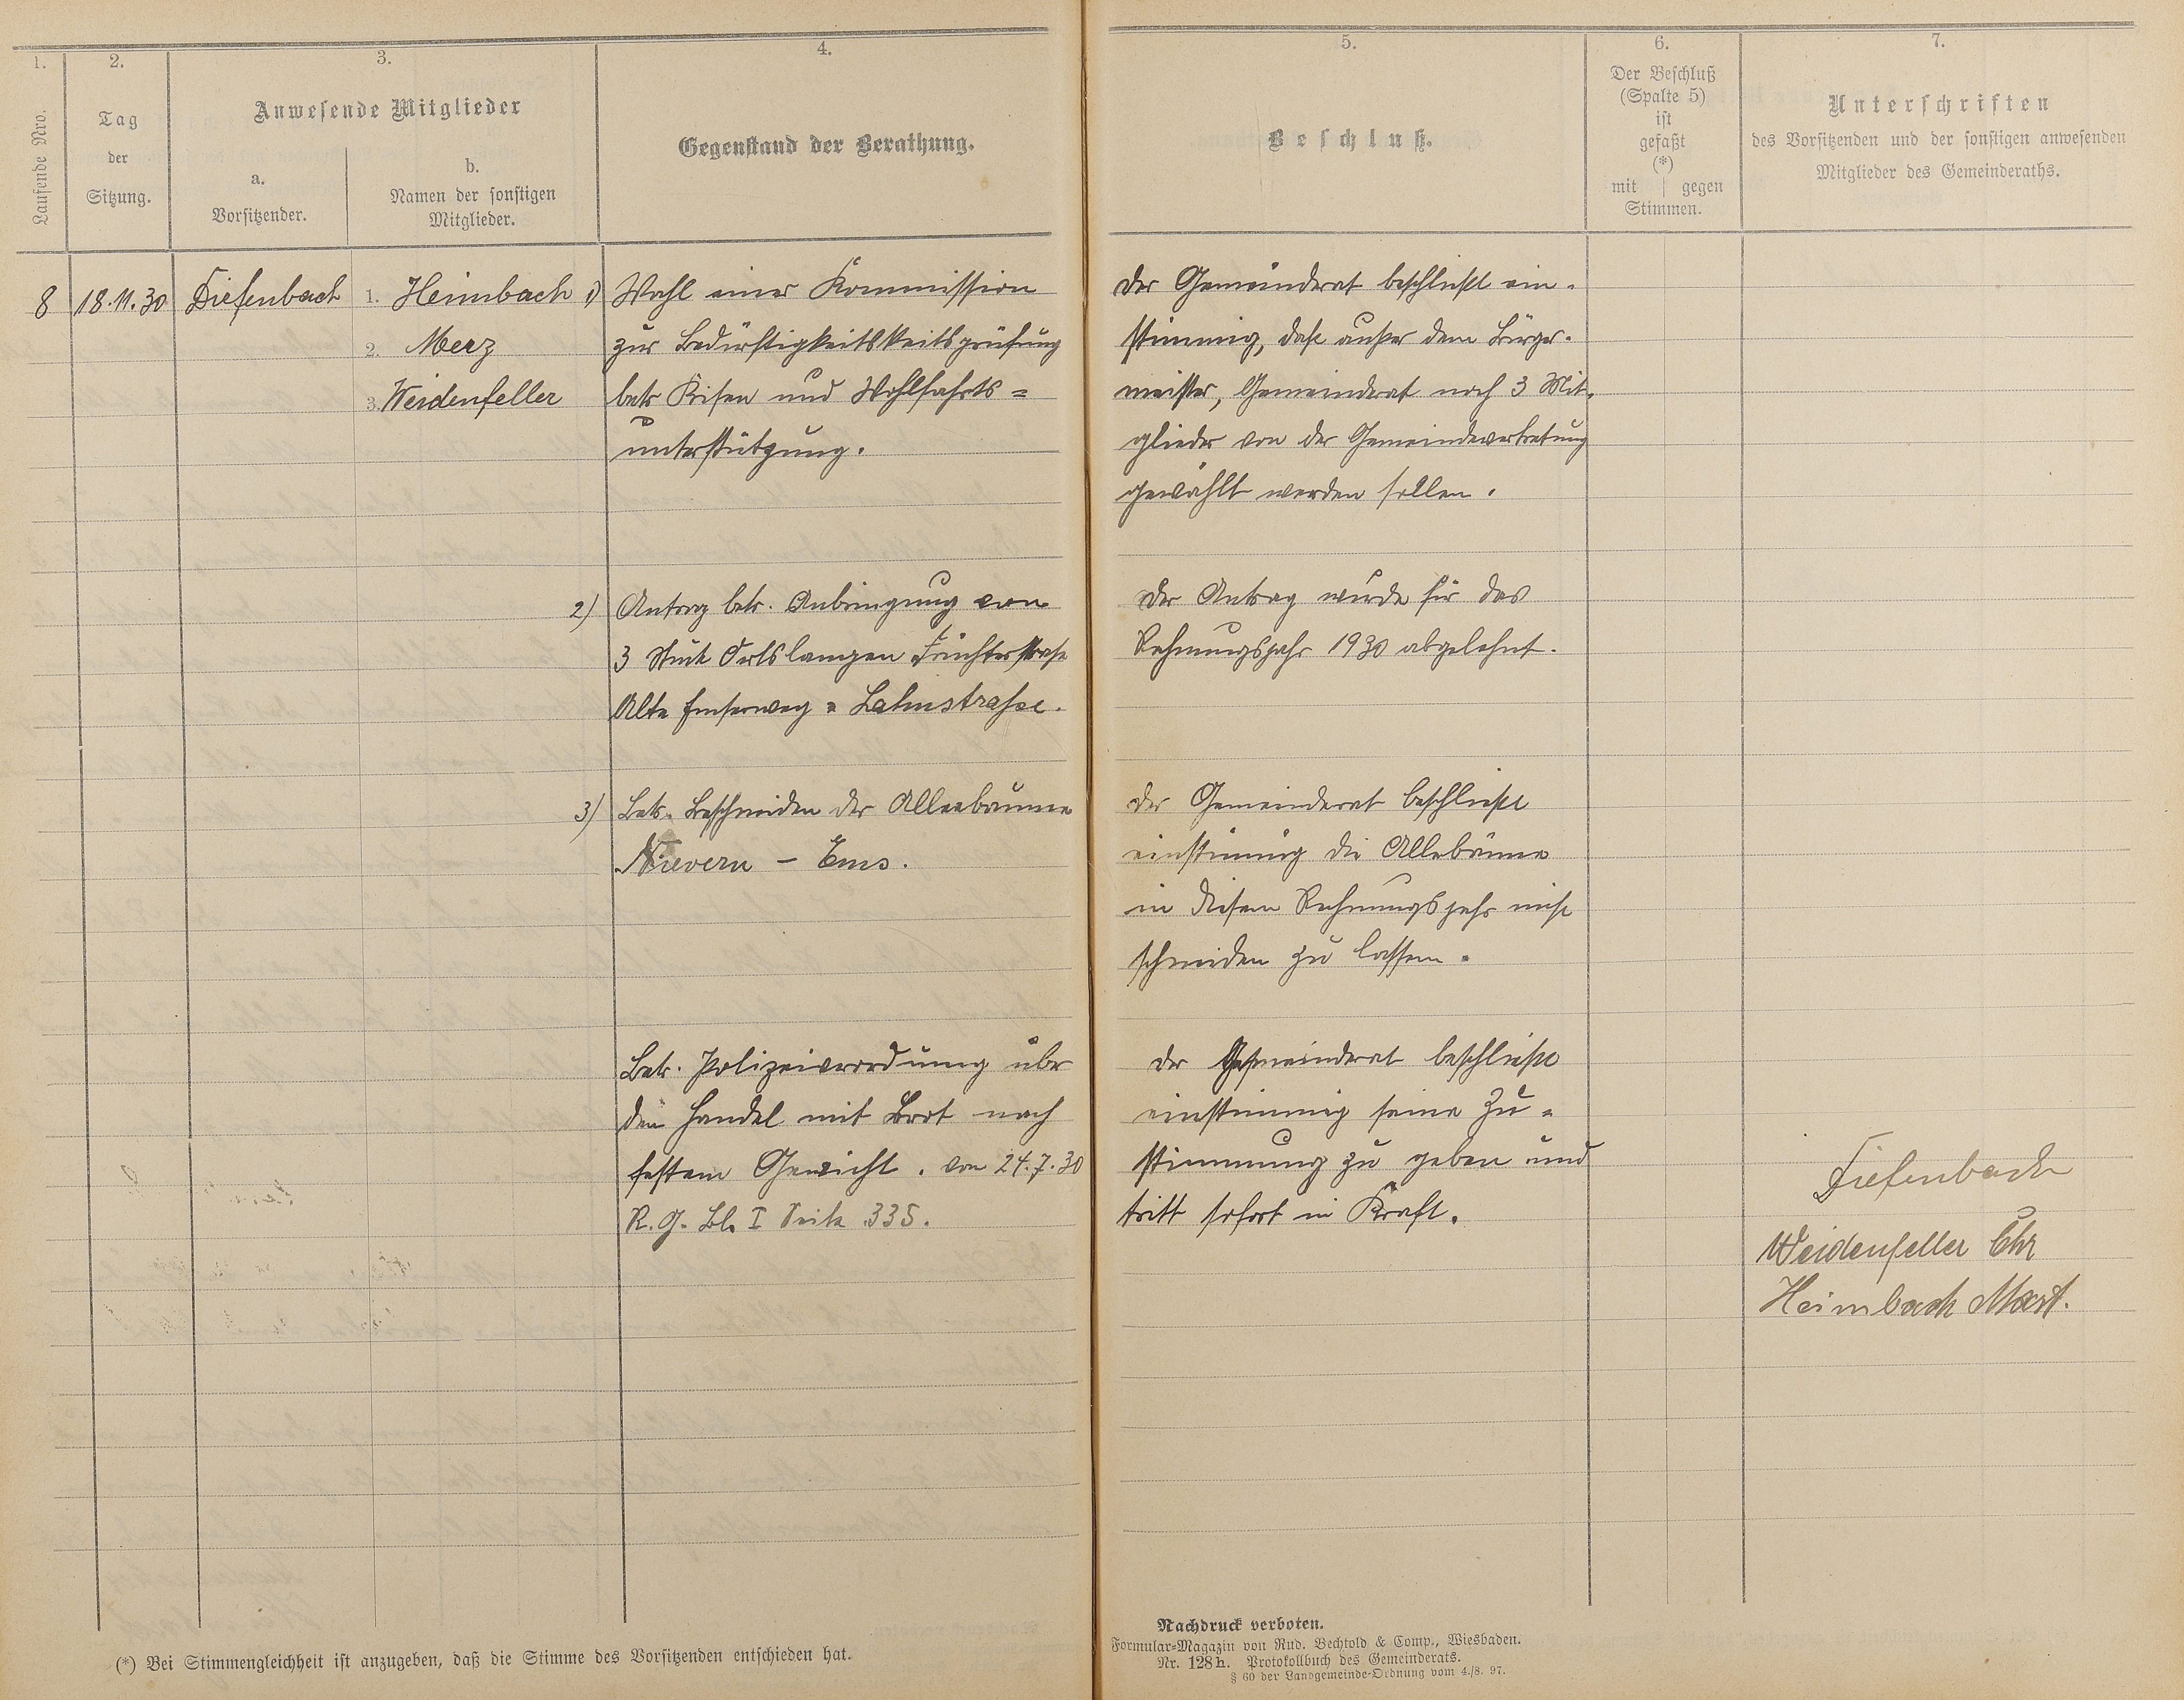 1.
2.
3.
4.
Laufende Nro.
Tag
der
Sitzung.
Anwesende Mitglieder
a.
Vorsitzender.
b.
Namen der sonstigen
Mitglieder.
Gegenstand der Berathung.
8
18.11.30
Diefenbach
1. Heimbach
2. Merz
3. Weidenfeller
1) Wahl einer Kommission
zur Bedürftigkeitskeitsprüfung
betr Krisen und Wohlfahrts=
unterstützung.
2) Antrag betr. Anbringung von
3 Stück Ortslampen Früchterstrase
Alte Emserweg = Lahnstraße.
3) Betr. Beschneiden der Alleebäume
Nievern – Ems.
Betr. Polizeiverordnung über
den Handel mit Brot nach
festem Gewicht. von 24.7.30
R. G. Bl. I Seite 335.
(*) Bei Stimmengleichheit ist anzugeben, daß die Stimme des Vorsitzenden entschieden hat.
5.
6.
7.
Beschluß.
Der Beschluß
(Spalte 5)
ist
gefaßt
(*)
mit gegen
Stimmen.
Unterschriften
des Vorsitzenden und der sonstigen anwesenden
Mitglieder des Gemeinderaths.
der Gemeinderat beschließt ein-
stimmig, daß außer dem Bürger-
meister, Gemeinderat noch 3 Mit-
glieder von der Gemeindevertretung
gewählt werden sollen.
Der Antrag wurde für das
Rechnungsjahr 1930 abgelehnt.
der Gemeinderat beschließt
einstimmig die Allebäume
in diesem Rechnungsjahr nicht
schneiden zu lassen.
der Gemeinderat beschließt
einstimmig seine Zu-
stimmung zu geben und
tritt sofort in Kraft.
Diefenbach
Weidenfeller Chr
Heimbach Mart.
Nachdruck verboten.
Formular-Magazin von Rud. Bechtold & Comp., Wiesbaden.
Nr. 128h. Protokollbuch des Gemeinderats.
§ 60 der Landgemeinde-Ordnung vom 4./8. 97.